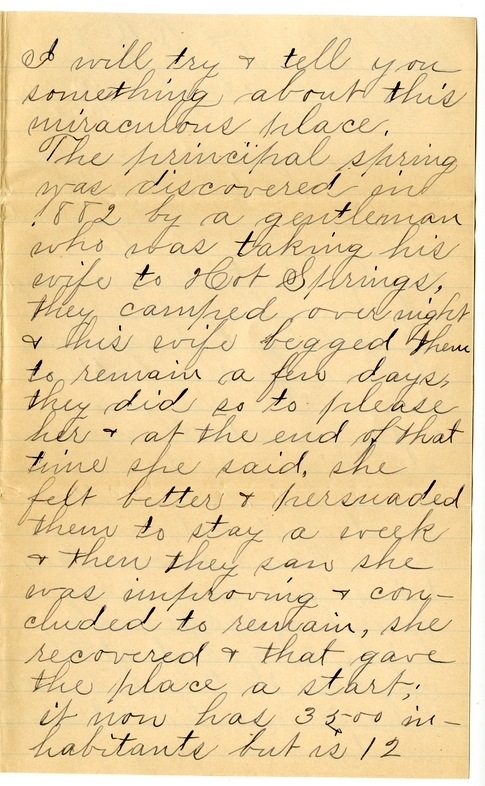 I will try & tell you
something about this
miraculous place.
The principal spring
was discovered in
1882 by a gentleman
who was taking his
wife to Hot Springs,
they camped over night
& his wife begged them
to remain a few days,
they did so to please
her & at the end of that
time she said, she
felt better & persuaded
them to stay a week
& then they saw she
was improving & con-
cluded to remain, she
recovered & that gave
the place a start;
it now has 3500 in-
habitants but is 12